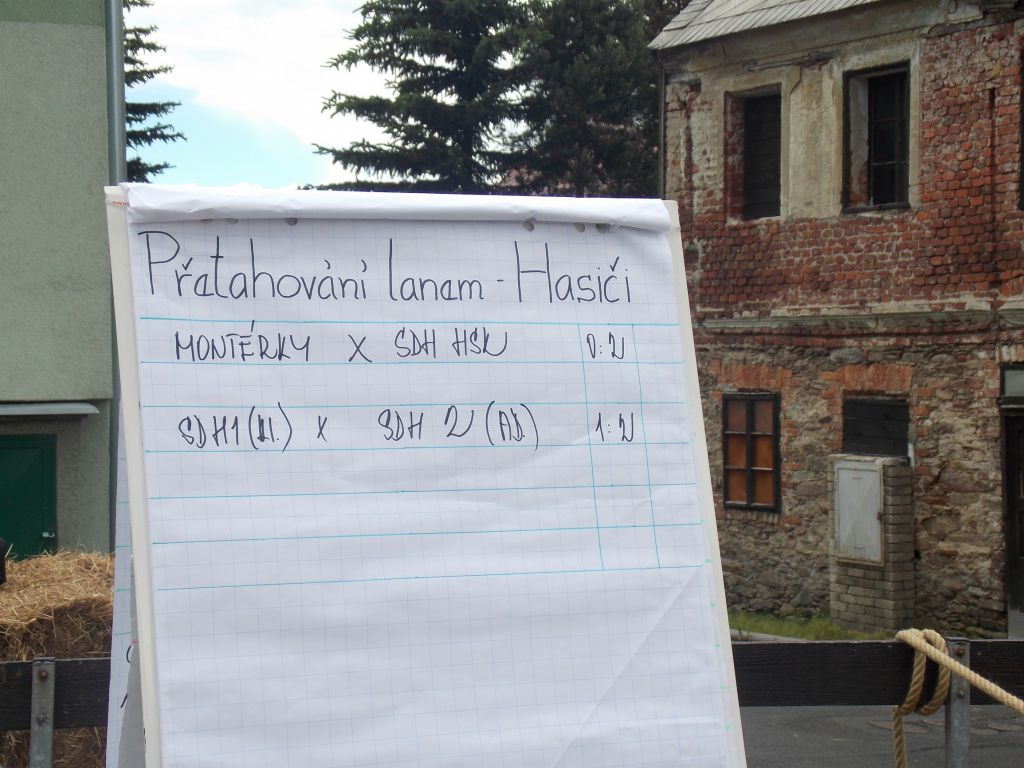 Přetahování lanem - Hasiči
MONTÉRKY X SDH HSK 0:2
SDH1 (H.) X SDH 2 (AD.) 1:2